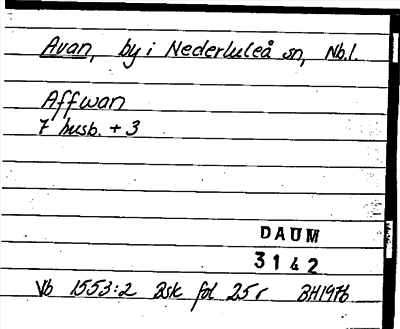 Avan, by i Nederluleå sn, Nb.l.
Affwan
7 husb. + 3
DAUM
3142
Vb 1553:2 Bsk fol 25r BH1976